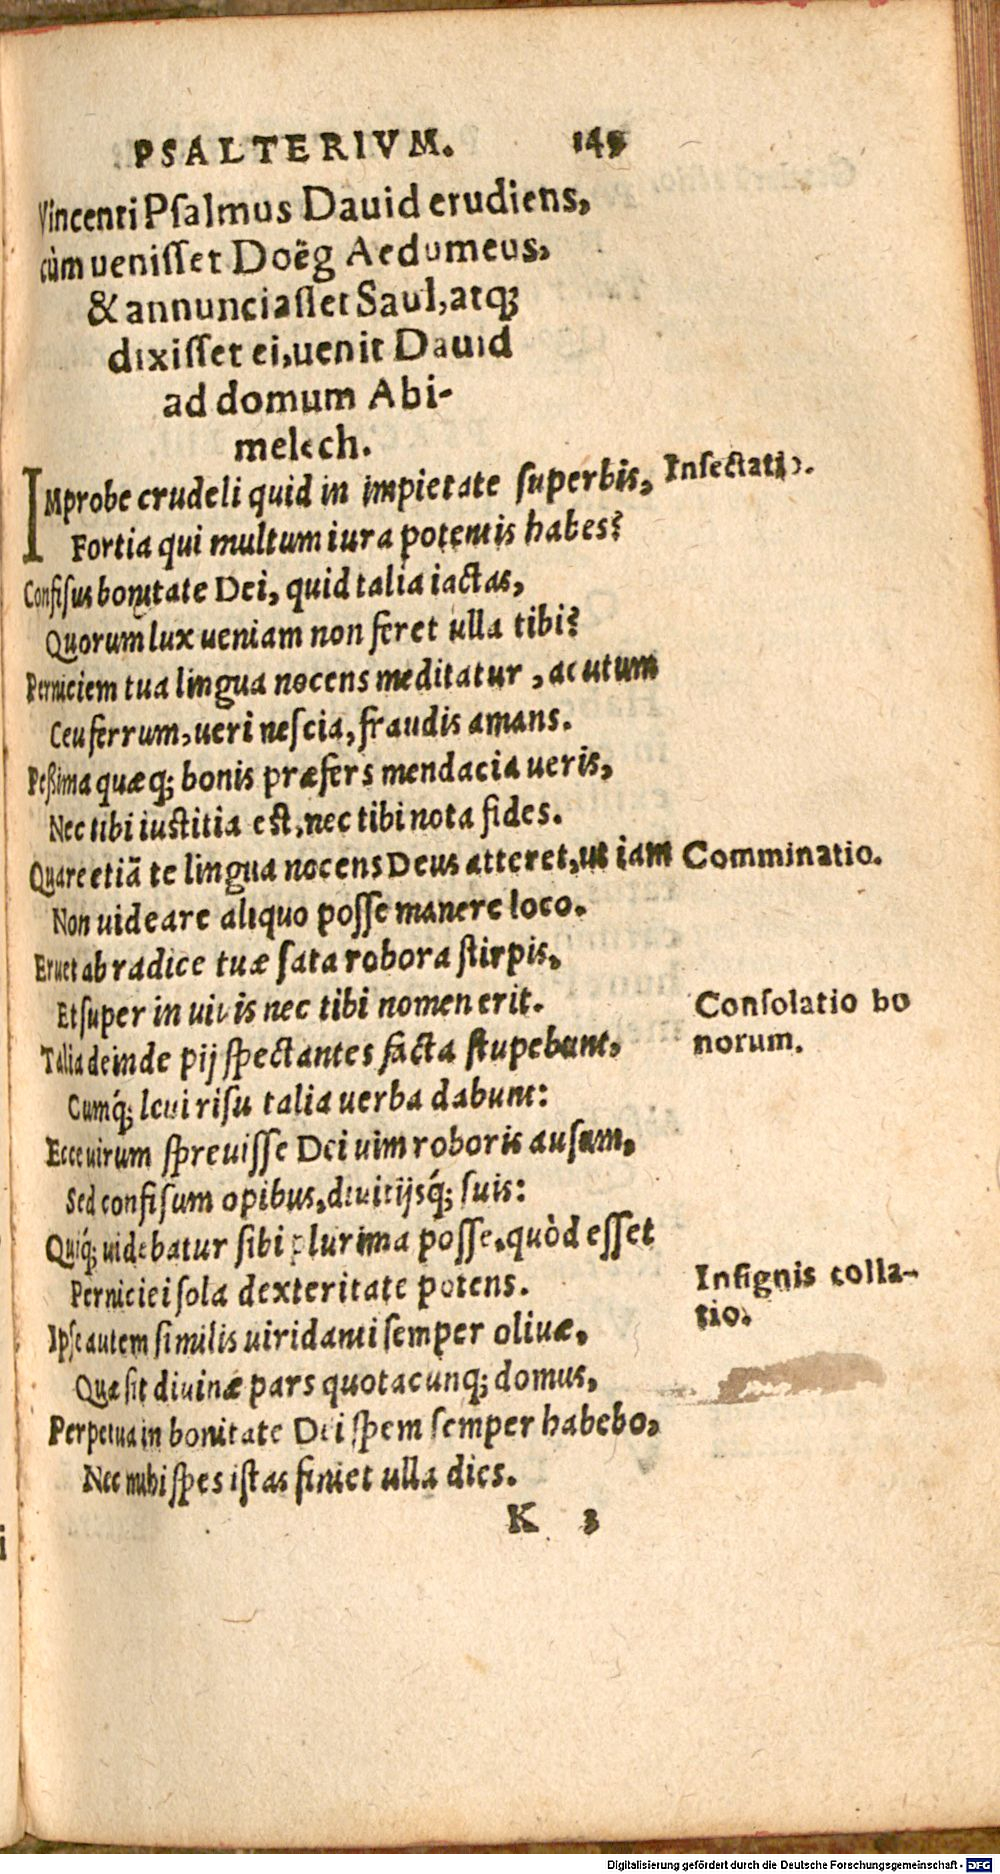 PSALTERIVM. 149
Vincenti Psalmus Dauid erudiens,
cùm uenisset Doëg Aedumeus,
& annunciasset Saul, atq;
dixisset ei, uenit Dauid
ad domum Abi-
melech.
IMprobe crudeli quid in impietate superbis, Insectatio.
Fortia qui multum iura potentis habes?
Confisus bonitate Dei, quid talia iactas,
Quorum lux ueniam non feret ulla tibi?
Perniciem tua lingua nocens meditatur, acutum
Ceu ferrum, ueri nescia, fraudis amans.
Peßima quæq; bonis præfers mendacia ueris,
Nec tibi iustitia est, nec tibi nota fides.
Quare etiã te lingua nocens Deus atteret, ut iam Comminatio.
Non uideare aliquo posse manere loco.
Eruet ab radice tuæ sata robora stirpis,
Et super in uiuis nec tibi nomen erit. Consolatio bo
Talia deinde pij spectantes facta stupebunt, norum.
Cumq́; leui risu talia uerba dabunt:
Ecce uirum spreuisse Dei uim roboris ausum,
Sed confisum opibus, diuitijsq́; suis:
Quiq́; uidebatur sibi plurima posse, quòd esset
Perniciei sola dexteritate potens. Insignis colla-
Ipse autem similis uiridanti semper oliuæ, tio.
Quæ sit diuinæ pars quotacunq; domus,
Perpetua in bonitate Dei spem semper habebo,
Nec mihi spes istas finiet ulla dies.
K 3
Digitalisierung gefördert durch die Deutsche Forschungsgemeinschaft - DFG